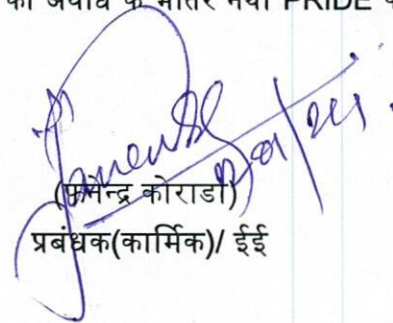 की अवधि के भीतर नया PRIDE
(फनेन्द्र कोराडा)
प्रबंधक(कार्मिक)/ ईई